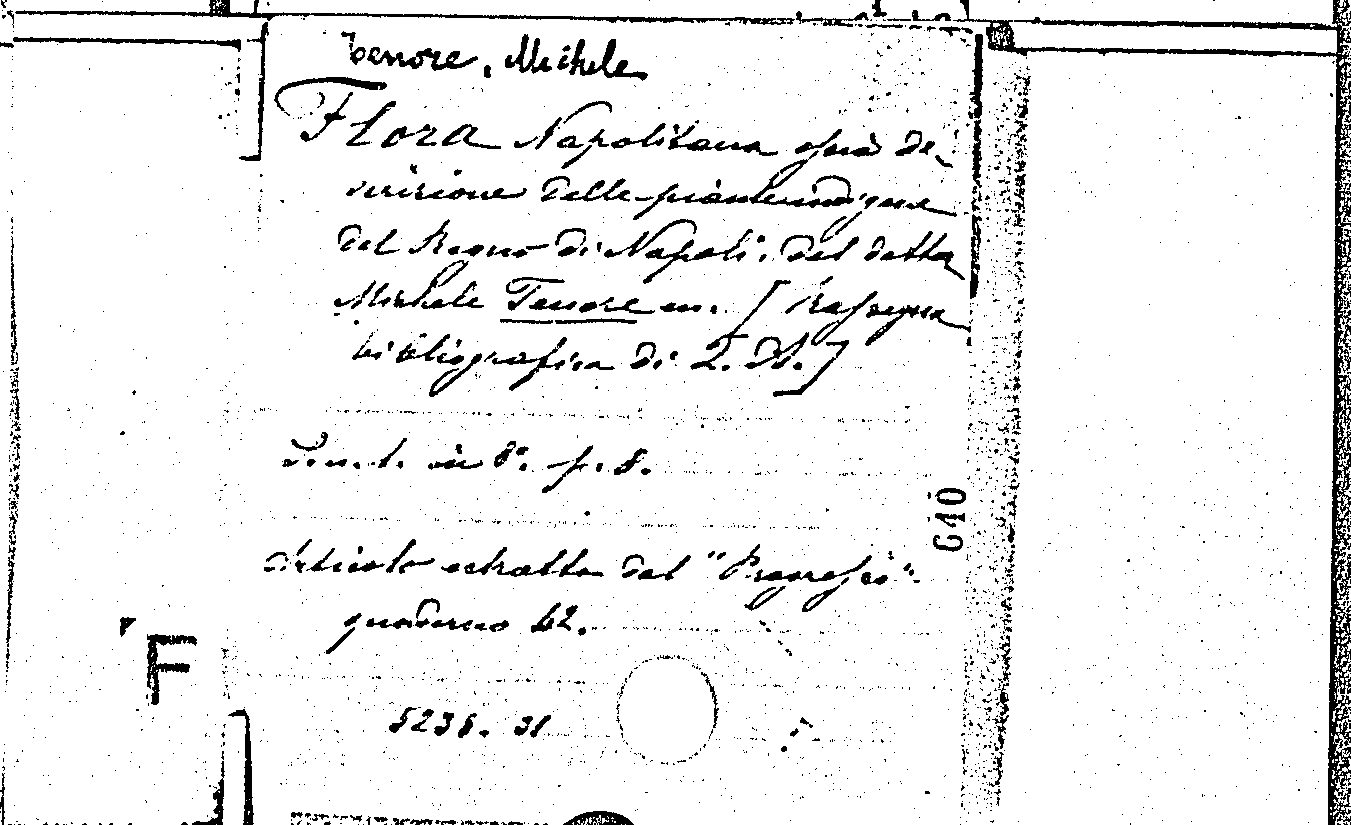 Tenore, Michele
Flora Napolitana ossia de-
scrizione delle piante indigene
del Regno di Napoli. Del dottor
Michele Tenore ec. [Rassegna
bibliografica di
S. n. t. in 8°. p. 8.
Articolo estratto dal "Progresso".
quaderno 42.
640
F
5236. 31